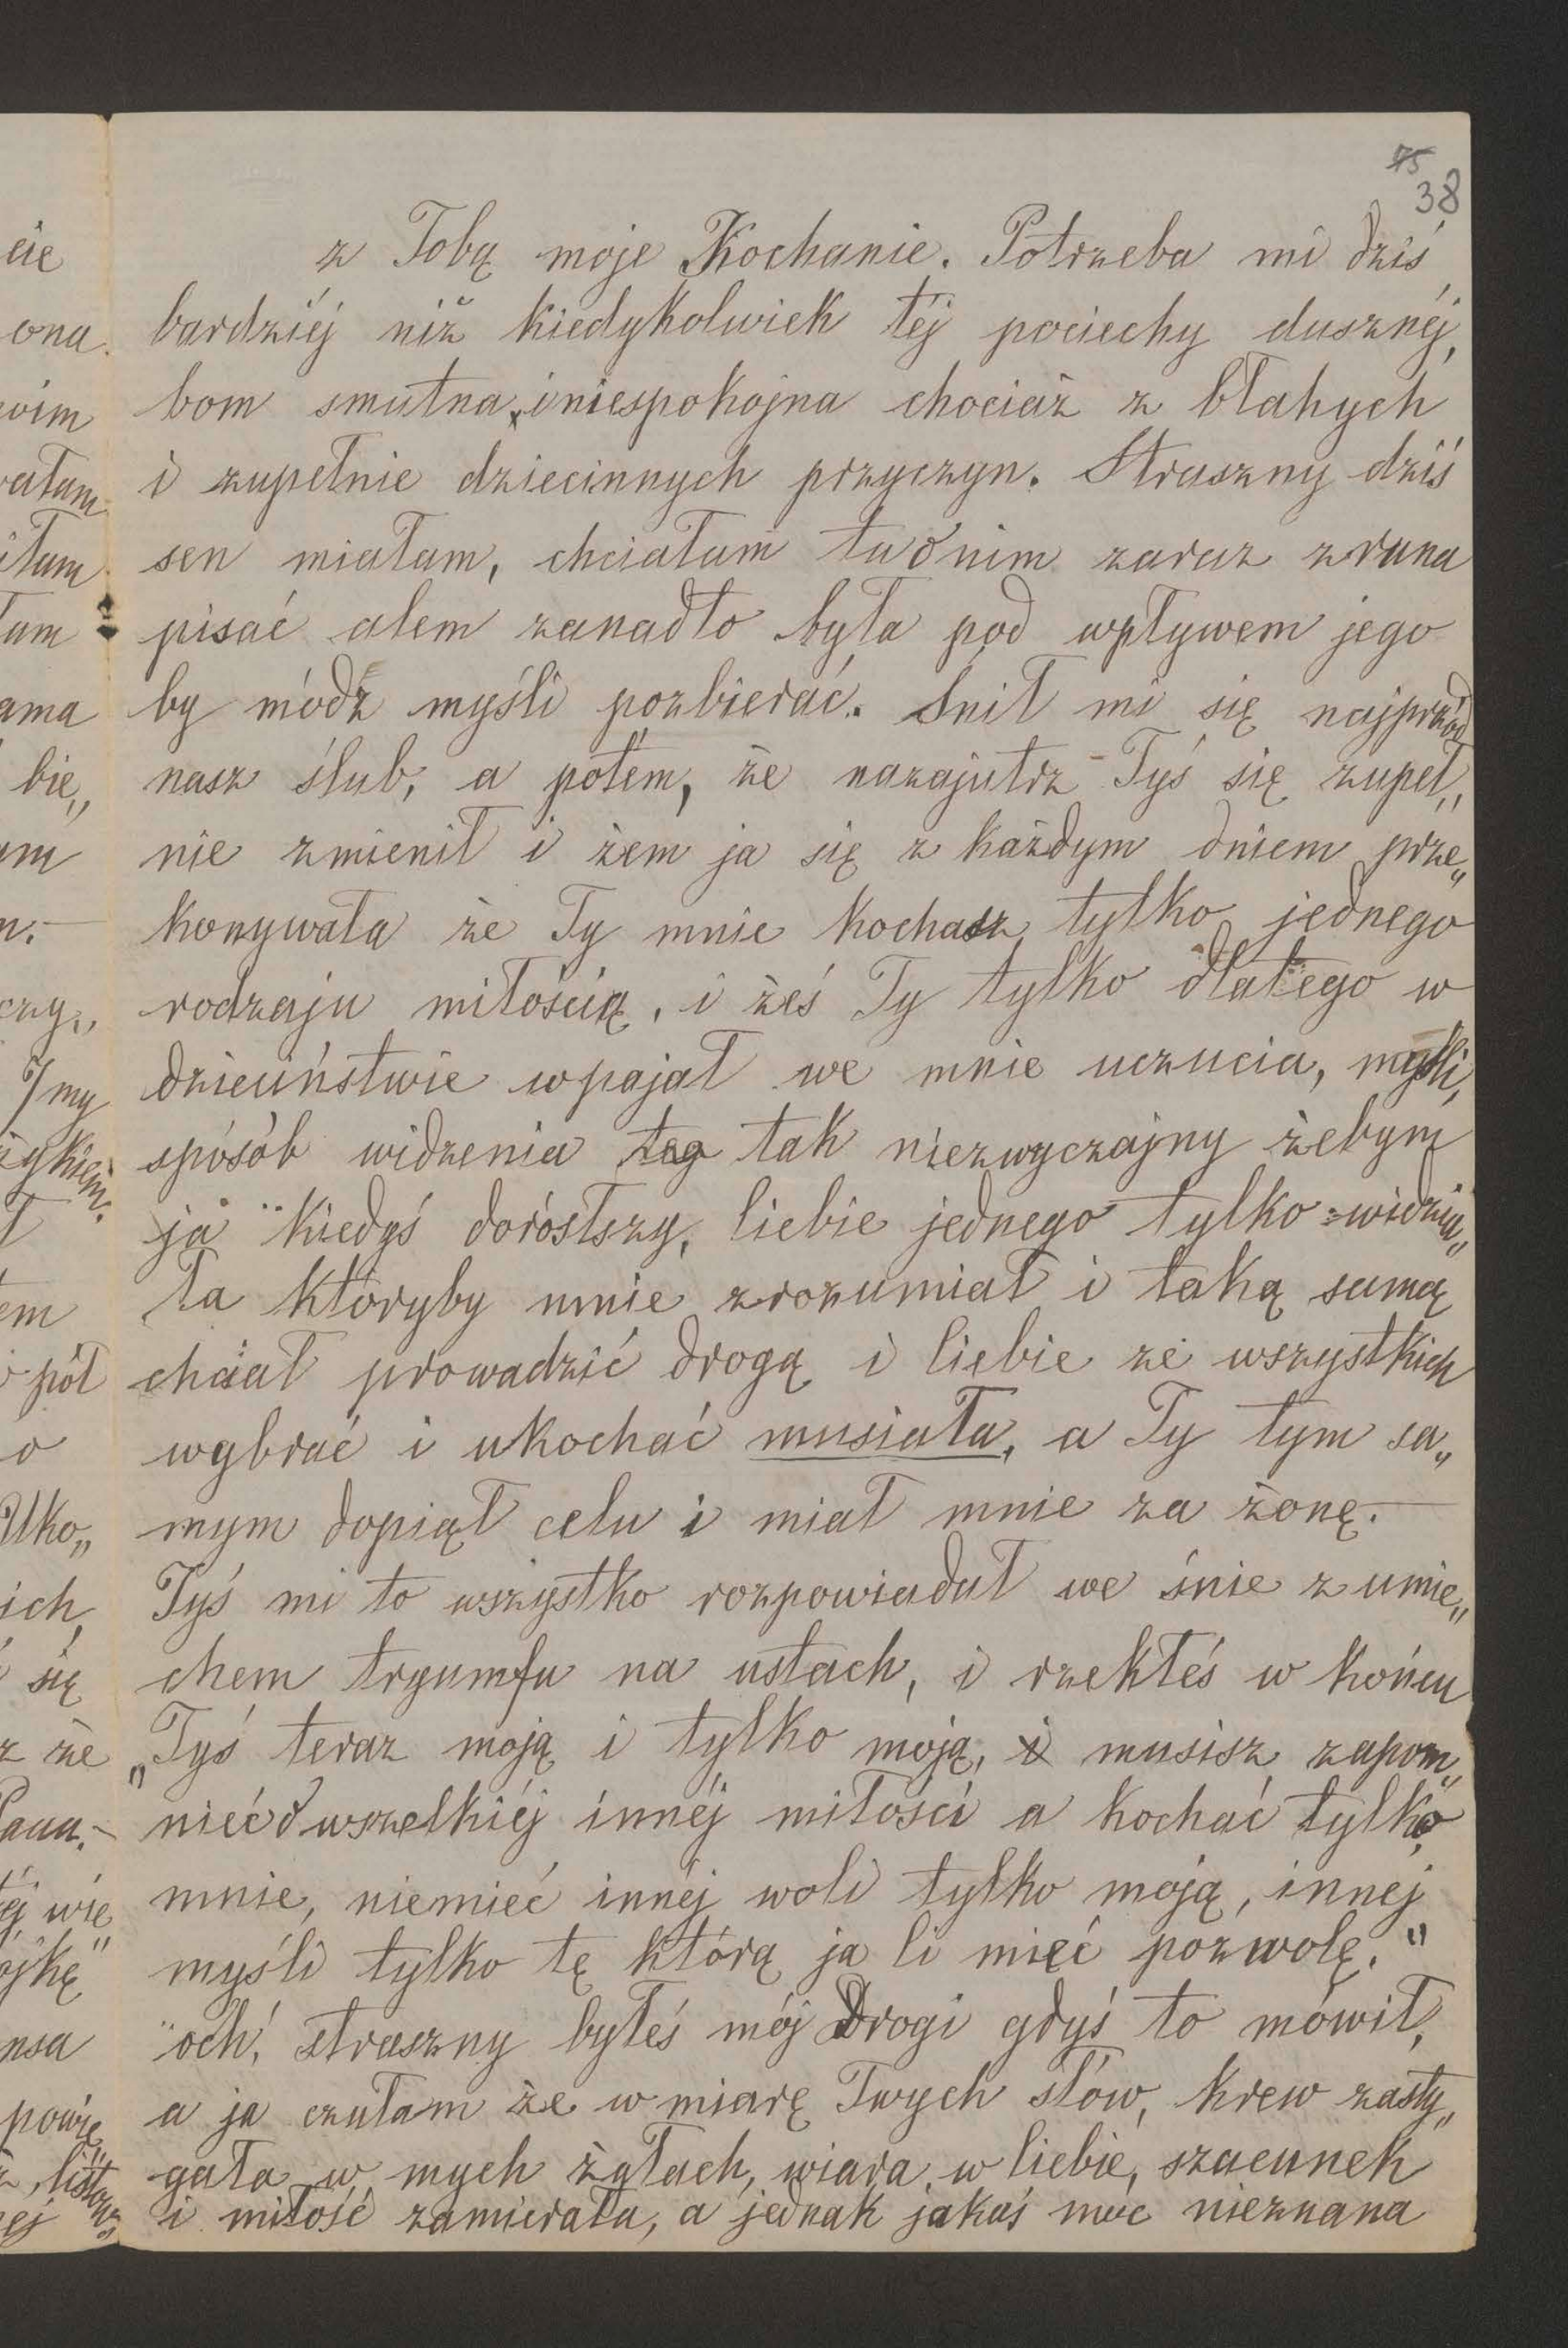 75
38
z Tobą moje Kochanie. Potrzeba mi dziś
bardziéj niż kiedykolwiek téj pociechy dusznéj,
bom smutna, i niespokojna chociaż z błahych
i zupełnie dziecinnych przyczyn. Straszny dziś
sen miałam, chciałam tu o nim zaraz zrana
pisać alem zanadto była pod wpływem jego
by módz myśli pozbierać. Śnił mi się najprzód
nasz ślub, a potem, że nazajutrz Tyś się zupeł„
nie zmienił i żem ja się z każdym dniem prze„
konywała że Ty mnie kochasz tylko jednego
rodzaju miłością, i żeś Ty tylko dlatego w
dzieciństwie wpajał we mnie uczucia, myśli,
sposób widzenia teg tak niezwyczajny żebym
ja kiedyś dorósłszy, Ciebie jednego tylko widzia„
ła któryby mnie zrozumiał i taką samą
chciał prowadzić drogą i Ciebie ze wszystkich
wybrać i ukochać musiała, a Ty tym sa„
mym dopiął celu i miał mnie za żonę.—
Tyś mi to wszystko rozpowiadał we śnie z umie„
chem tryumfu na ustach, i rzekłeś w końcu
„Tyś teraz moją i tylko moją, i musisz zapom„
nieć o wszelkiéj innéj miłości a kochać tylko
mnie, niemieć innéj woli tylko moją, innej
myśli tylko tę którą ja Ci mieć pozwolę."
och, straszny byłeś mój Drogi gdyś to mówił,
a ja czułam że w miarę Twych słów, krew zasty„
gała w mych żyłach, wiara w Ciebie, szacunek
i miłość zamierała, a jednak jakaś moc nieznana
cie
ona
ama
bie„
czy„
I my
em
pół
o
ich,
się
że